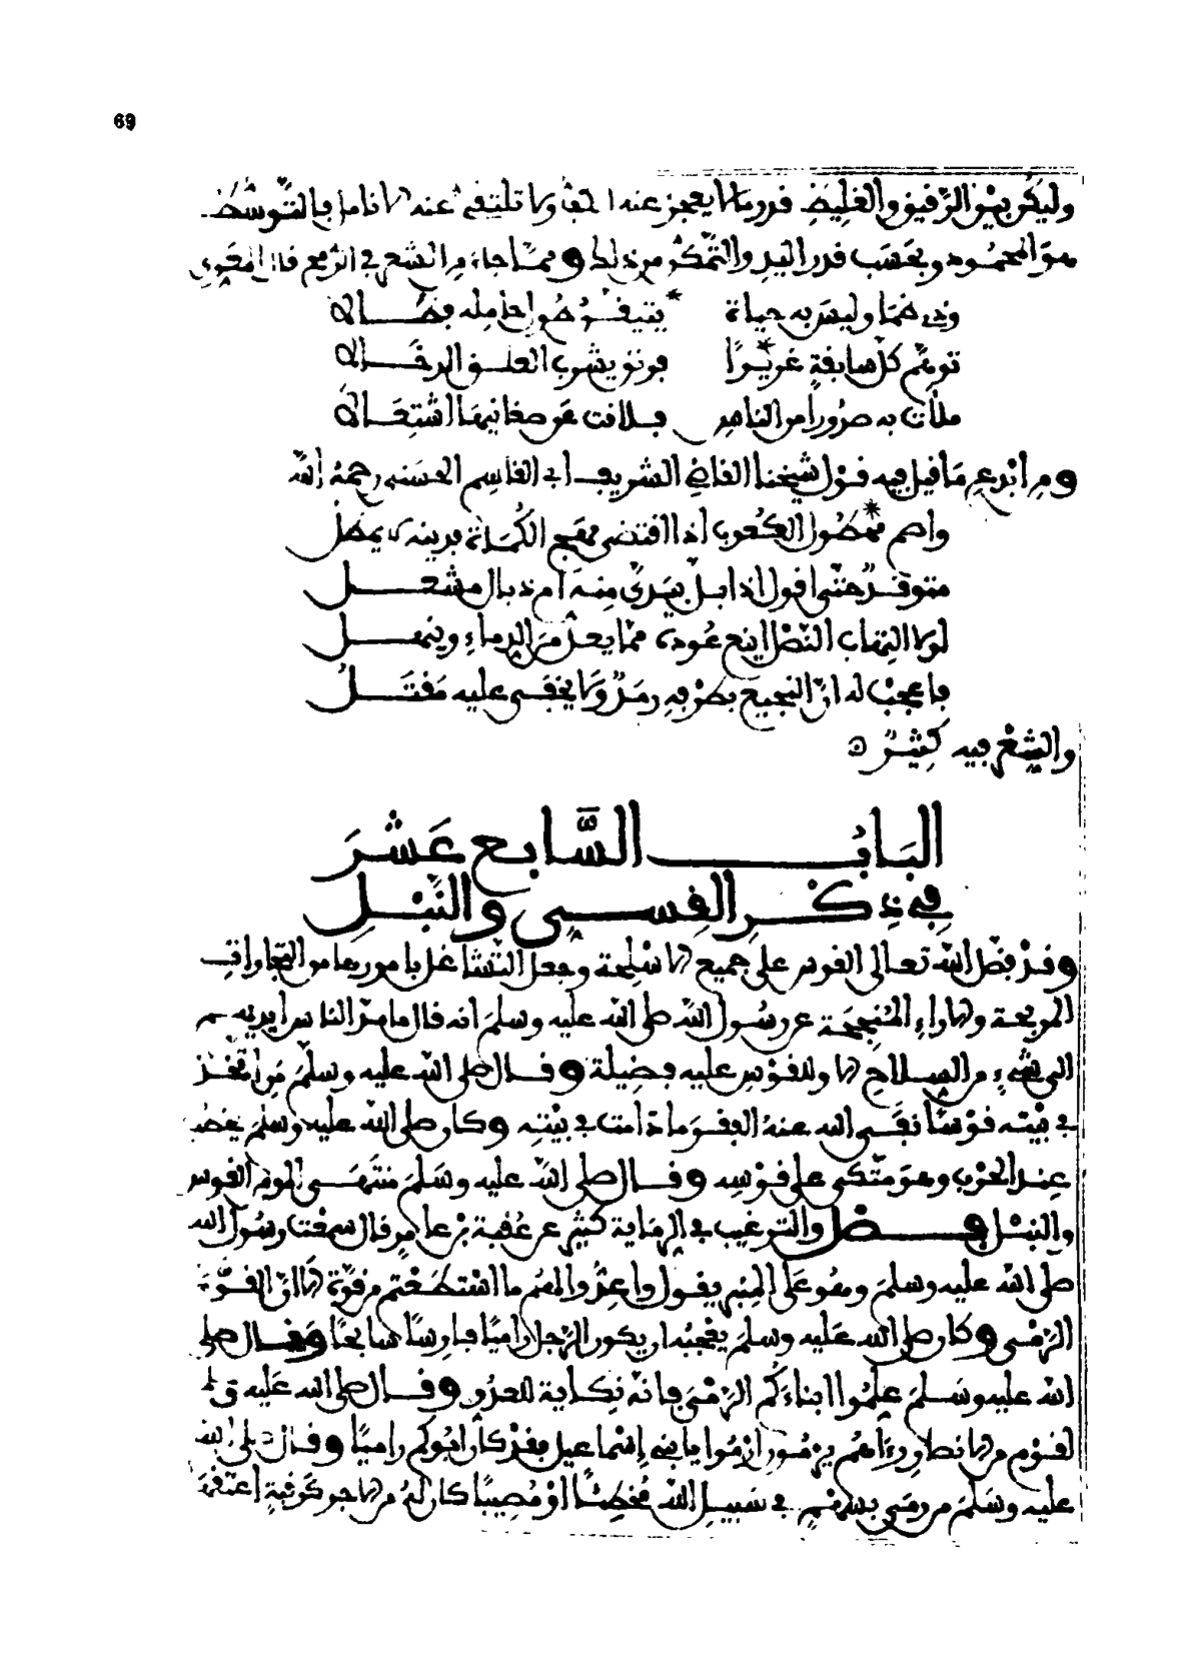 69
وليكن بين الرقيق والغليظ قدر ما لا يعجز عنه الكف ولا تلتقي عنه الأنامل فالتوسط
هو المحمود وبحسب قدر اليد والتمكن من ذلك ومما جاء من الشعر في الرمح قال المعري
وذي ظمأ وليس به حياة * تيقن طول حامله فطالا
توهم كل سابغة غديرا * فرنق يشرب الحلق الدخالا
ملأت به صدورا من أناس فلاقت عن ضغائنها اشتغالا
ومن أبدع ما قيل فيه قول شيخنا القاضي الشريف أبي القاسم الحسني رحمه الله
وأصم ممطول الكعوب إذا اقتضى مهج الكماة فدينه لا يمطل
متوقد حتى أقول أذابل بيدي منه أم ذبال مشعل
لولا التهاب النصل أينع عوده مما يعل من الدماء وينهل
فاعجب له أن النجيع بطرفه رمد ولا يخفى عليه مقتل
والشعر فيه كثير
الباب السابع عشر
في ذكر القسي والنبل
وقد فضل الله تعالى القوس على جميع الأسلحة وجعل التشاغل بأمورها من التجارات
المربحة والآراء المنجحة عن رسول الله صلى الله عليه وسلم أنه قال ما مد الناس أيديهم
إلى شيء من السلاح إلا وللقوس عليه فضيلة وقال صلى الله عليه وسلم من اتخذ
في بيته قوسا نفى الله عنه الفقر ما دامت في بيته وكان صلى الله عليه وسلم يخطب
عند الحرب وهو متكئ على قوسه وقال صلى الله عليه وسلم منتهى المؤمن القوس
والنبل فصل والترغيب في الرماية كثير عن عقبة بن عامر قال سمعت رسول الله
صلى الله عليه وسلم وهو على المنبر يقول وأعدوا لهم ما استطعتم من قوة ألا إن القوة
الرمي وكان صلى الله عليه وسلم يعجبه أن يكون الرجل راميا فارسا سابحا وقال صلى
الله عليه وسلم علموا أبناءكم الرمي فإنه نكاية للعدو وقال صلى الله عليه
لقوم من الأنصار رءاهم يرمون ارموا يا بني إسماعيل فقد كان أبوكم راميا وقال صلى الله
عليه وسلم من رمى بسهم في سبيل الله مخطئا أو مصيبا كان له من الأجر كرقبة أعتقها